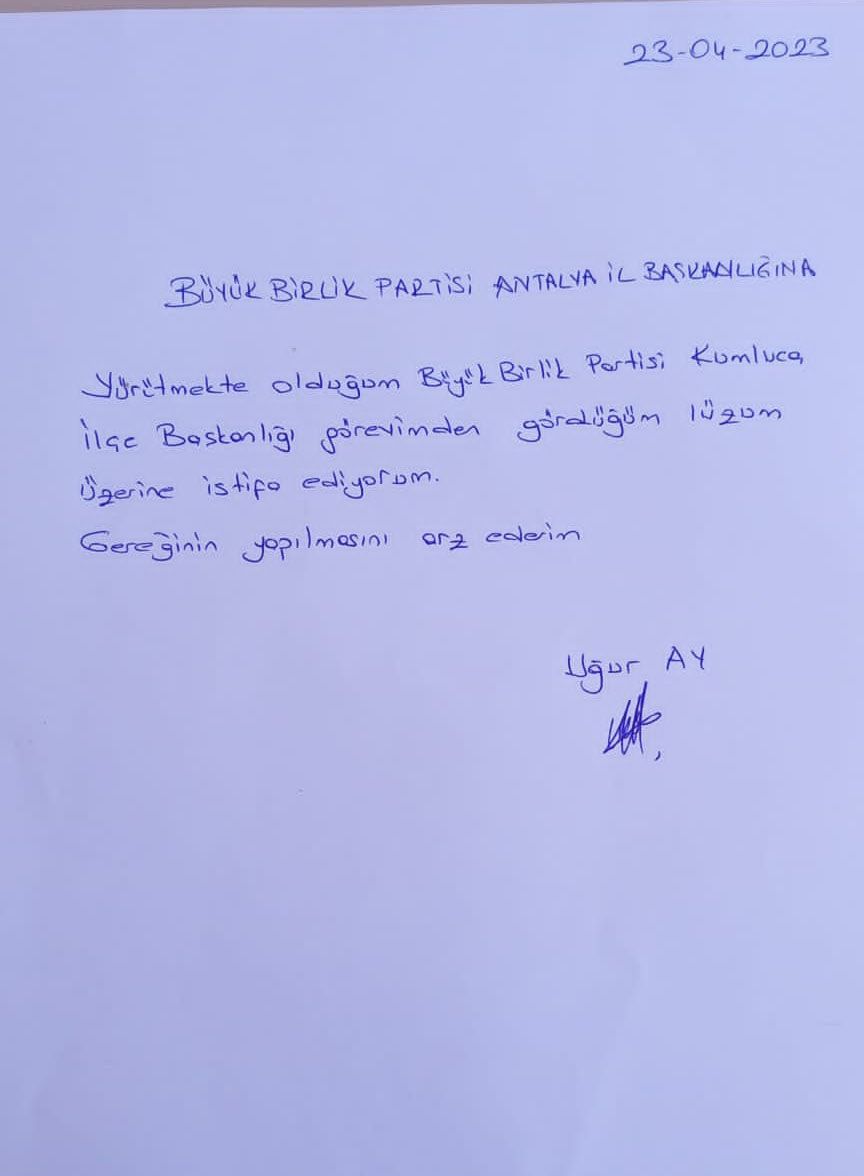 23-04-2023
BÜYÜK BİRLİK PARTİSİ ANTALYA İL BAŞKANLIĞINA
Yürütmekte olduğum Büyük Birlik Partisi Kumluca
İlçe Başkanlığı görevimden gördüğüm lüzum
üzerine istifa ediyorum.
Gereğinin yapılmasını arz ederim
Uğur AY